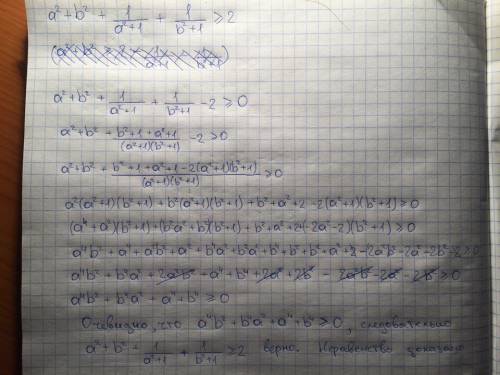 a² + b² + 1/(a²+1) + 1/(b²+1) ≥ 2
a² + b² + 1/(a²+1) + 1/(b²+1) - 2 ≥ 0
a² + b² + (b²+1+a²+1)/((a²+1)(b²+1)) - 2 ≥ 0
a² + b² + (b²+1+a²+1-2(a²+1)(b²+1))/((a²+1)(b²+1)) ≥ 0
a²(a²+1)(b²+1) + b²(a²+1)(b²+1) + b²+a²+2 -2(a²+1)(b²+1) ≥ 0
(a⁴+a²)(b²+1) + (b²a²+b²)(b²+1) + b²+a²+2+(-2a²-2)(b²+1) ≥ 0
a⁴b² + a⁴ + a²b² + a² + b⁴a² + b²a² + b⁴ + b² + b² + a² + 2 - 2a²b² - 2a² - 2b² - 2 ≥ 0
a⁴b² + b⁴a² + 2a²b² + a⁴ + b⁴ + 2a² + 2b² - 2a²b² - 2a² - 2b² ≥ 0
a⁴b² + b⁴a² + a⁴ + b⁴ ≥ 0
Очевидно, что a⁴b² + b⁴a² + a⁴ + b⁴ ≥ 0, следовательно
a² + b² + 1/(a²+1) + 1/(b²+1) ≥ 2 верно. Неравенство доказано